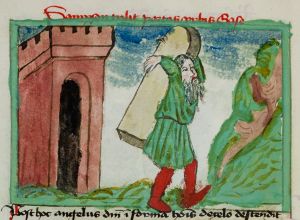 Sampson tulit portas urbis Gase
Post hoc angelus dñi ĩ forma hoĩs de celo descendit